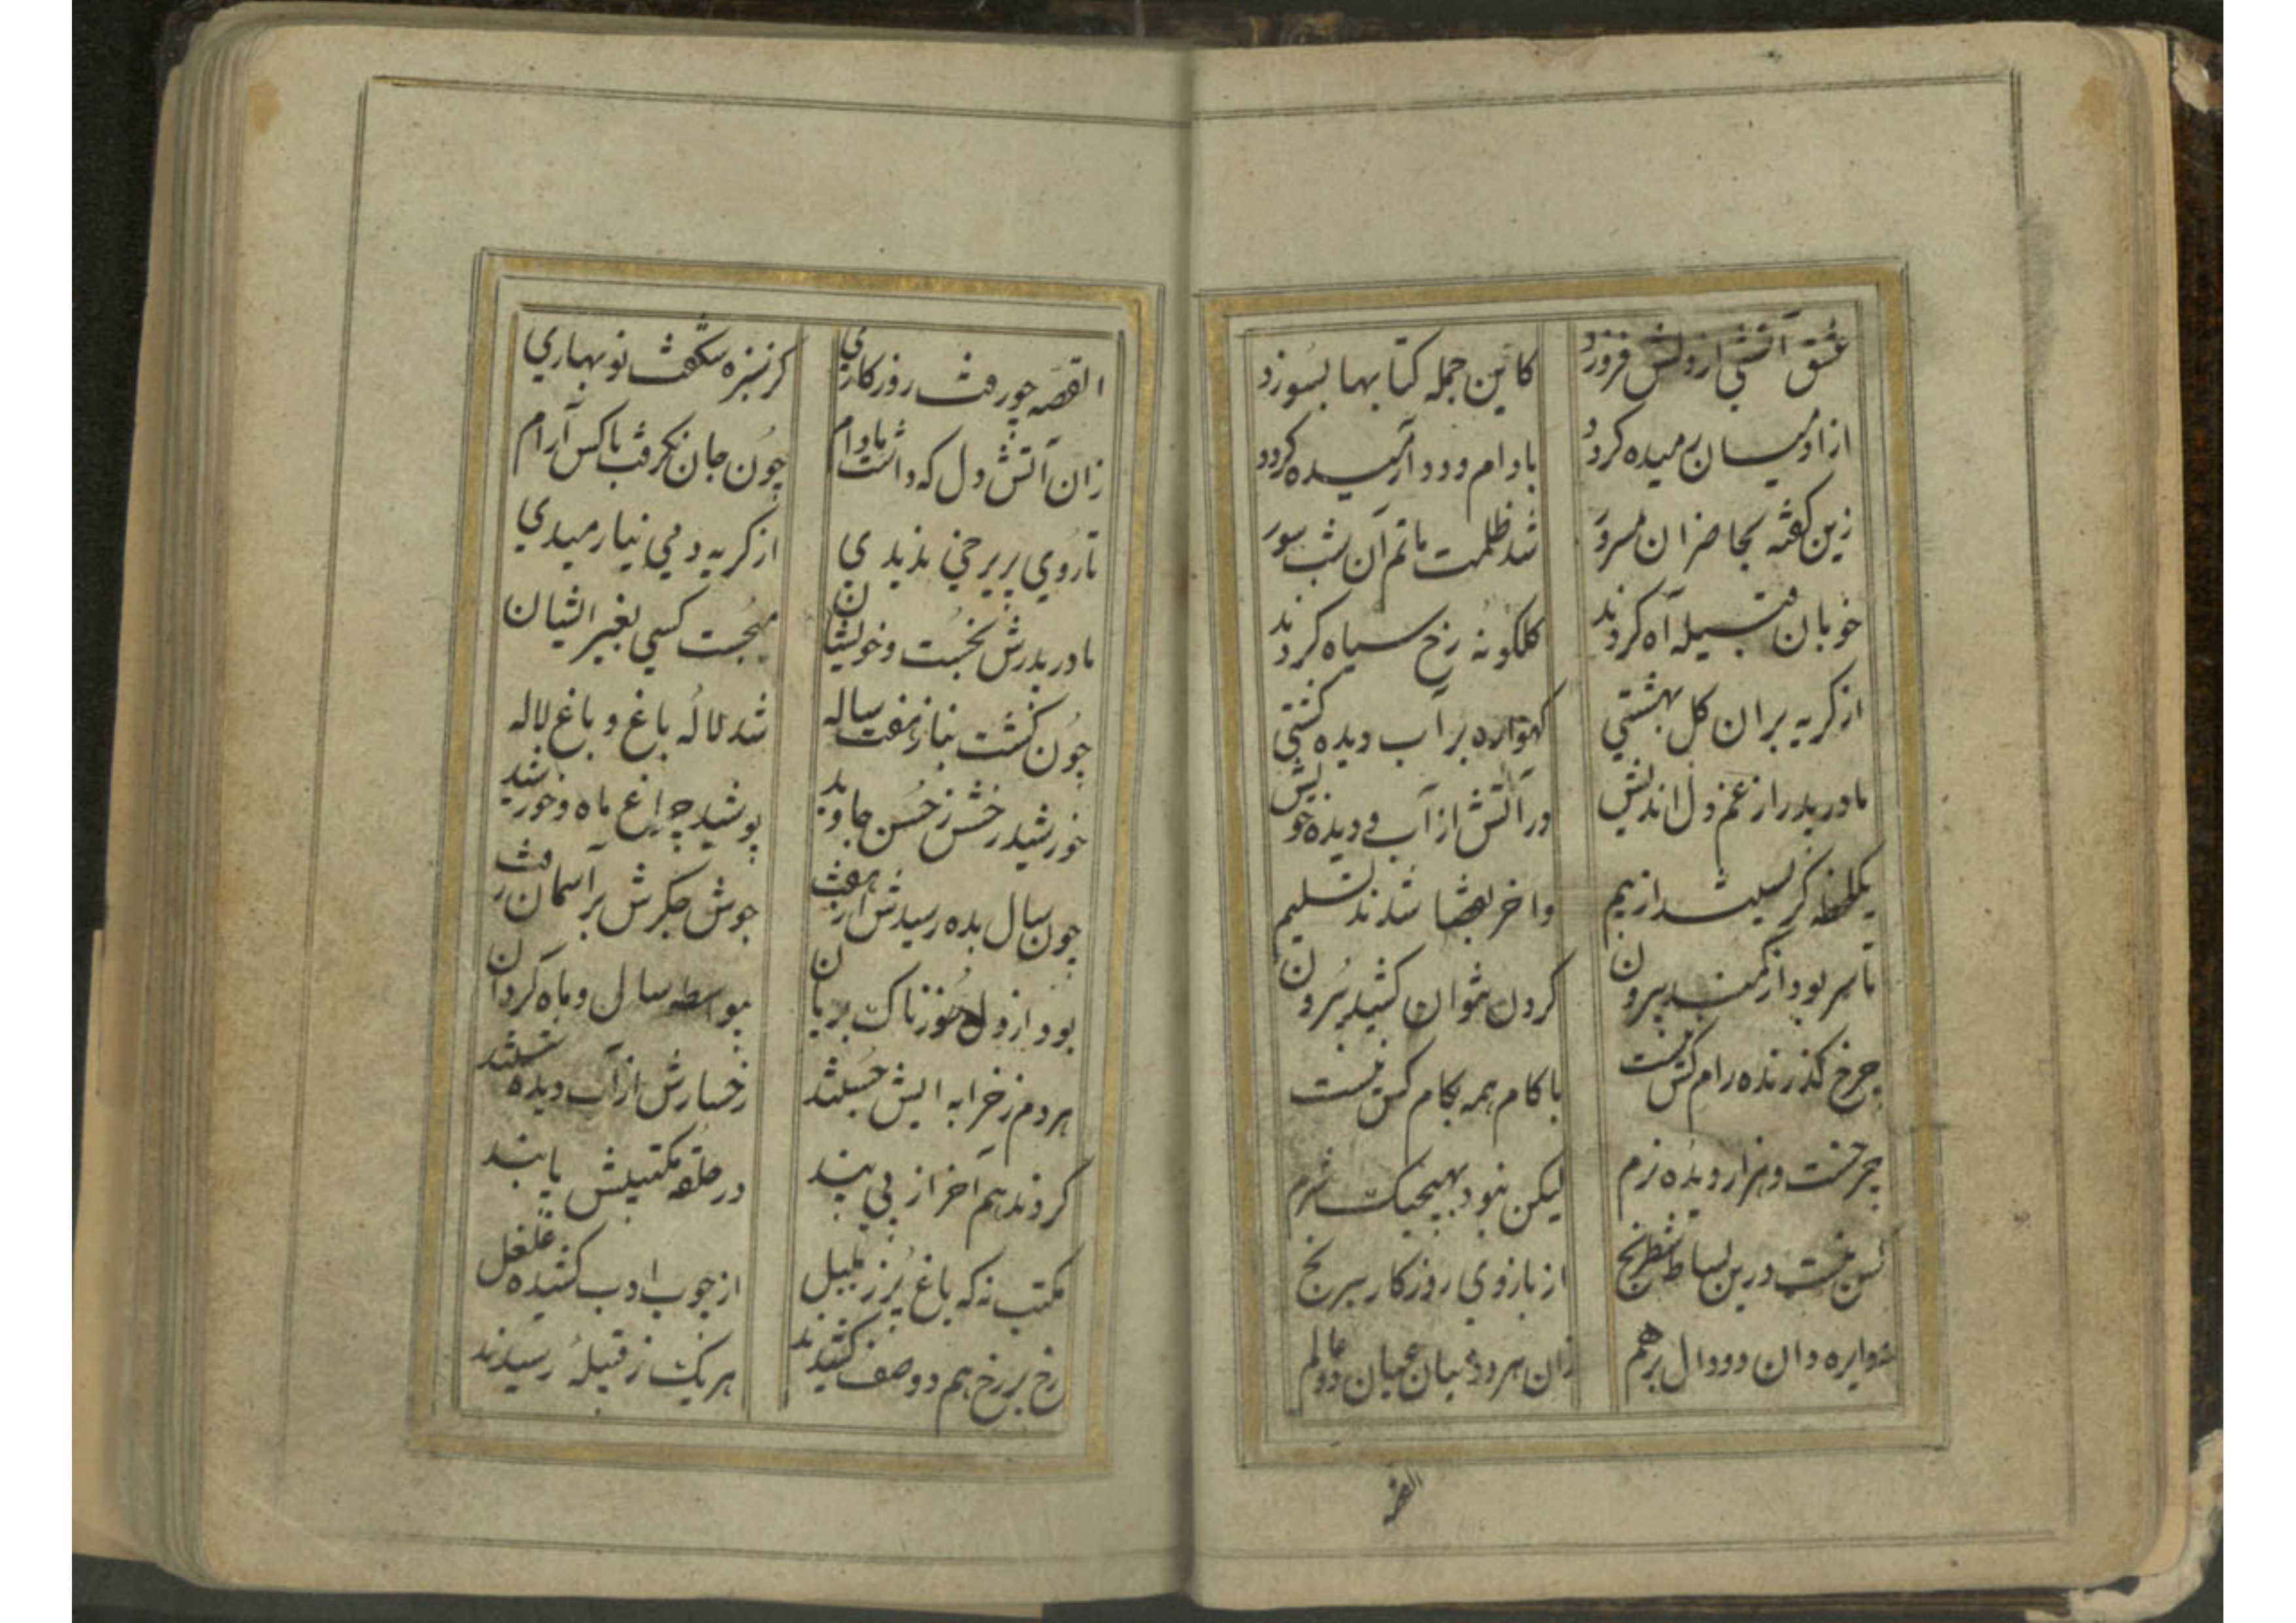 عشق آتشی از دلش فروزد
کاتین جمله کتابها بسوزد
از آدمیان رمیده گردد
با دام و دد آرمیده گردد
زین گفته بحاضران مسرور
شد ظلمت ماتم آن شب سور
خوبان قبیله آه کردند
کلکونه رخ سیاه کردند
از کریه بران کل بهشتی
کهواره بر آب دیده کشتی
مادر پدر از غم دل اندیش
در آتش از آب دیده خویش
یکلحظه کریستند از بیم
واخر بقضا شدند تسلیم
تا سر بود از کمند بیرون
کردن نتوان کشید بیرون
چرخ کذرنده رام کس نیست
با کام همه بکام کس نیست
چرخست و هزار دیده نرم
لیکن نبود بهیچیک شرم
کس نیست درین بساط شطرنج
از بازوی روزکار بیرنج
دان دو دال برهم
زان هر دو میان عیان دو عالم
القصه
القصه چو رفت روزکاری
کز سبزه شکفت نوبهاری
زان آتش دل که داشت مادام
چون جان نکرفت با کس آرام
تا روی پریرخی ندیدی
از کریه دمی نیارمیدی
مادر پدرش نخست و خویشان
میجست کسی بغیر ایشان
چون کشت بناز هفت ساله
شد لاله باغ و باغ لاله
خورشید رخش ز حسن جاوید
پوشید چراغ ماه و خورشید
چون سال بده رسیدش از هفت
جوش جکرش بر آسمان رفت
بود از دل سوزناک بریان
بیواسطه سال و ماه کریان
هر دم ز خرابه ایش جستند
رخسارش از آب دیده شستند
کردند هم آخر از پی پند
در حلقه مکتبیش پابند
مکتب نه که باغ پر ز بلبل
از چوب ادب کشیده غلغل
رخ بر رخ هم دو صف کشیدند
هر یک ز قبیلۀ رسیدند